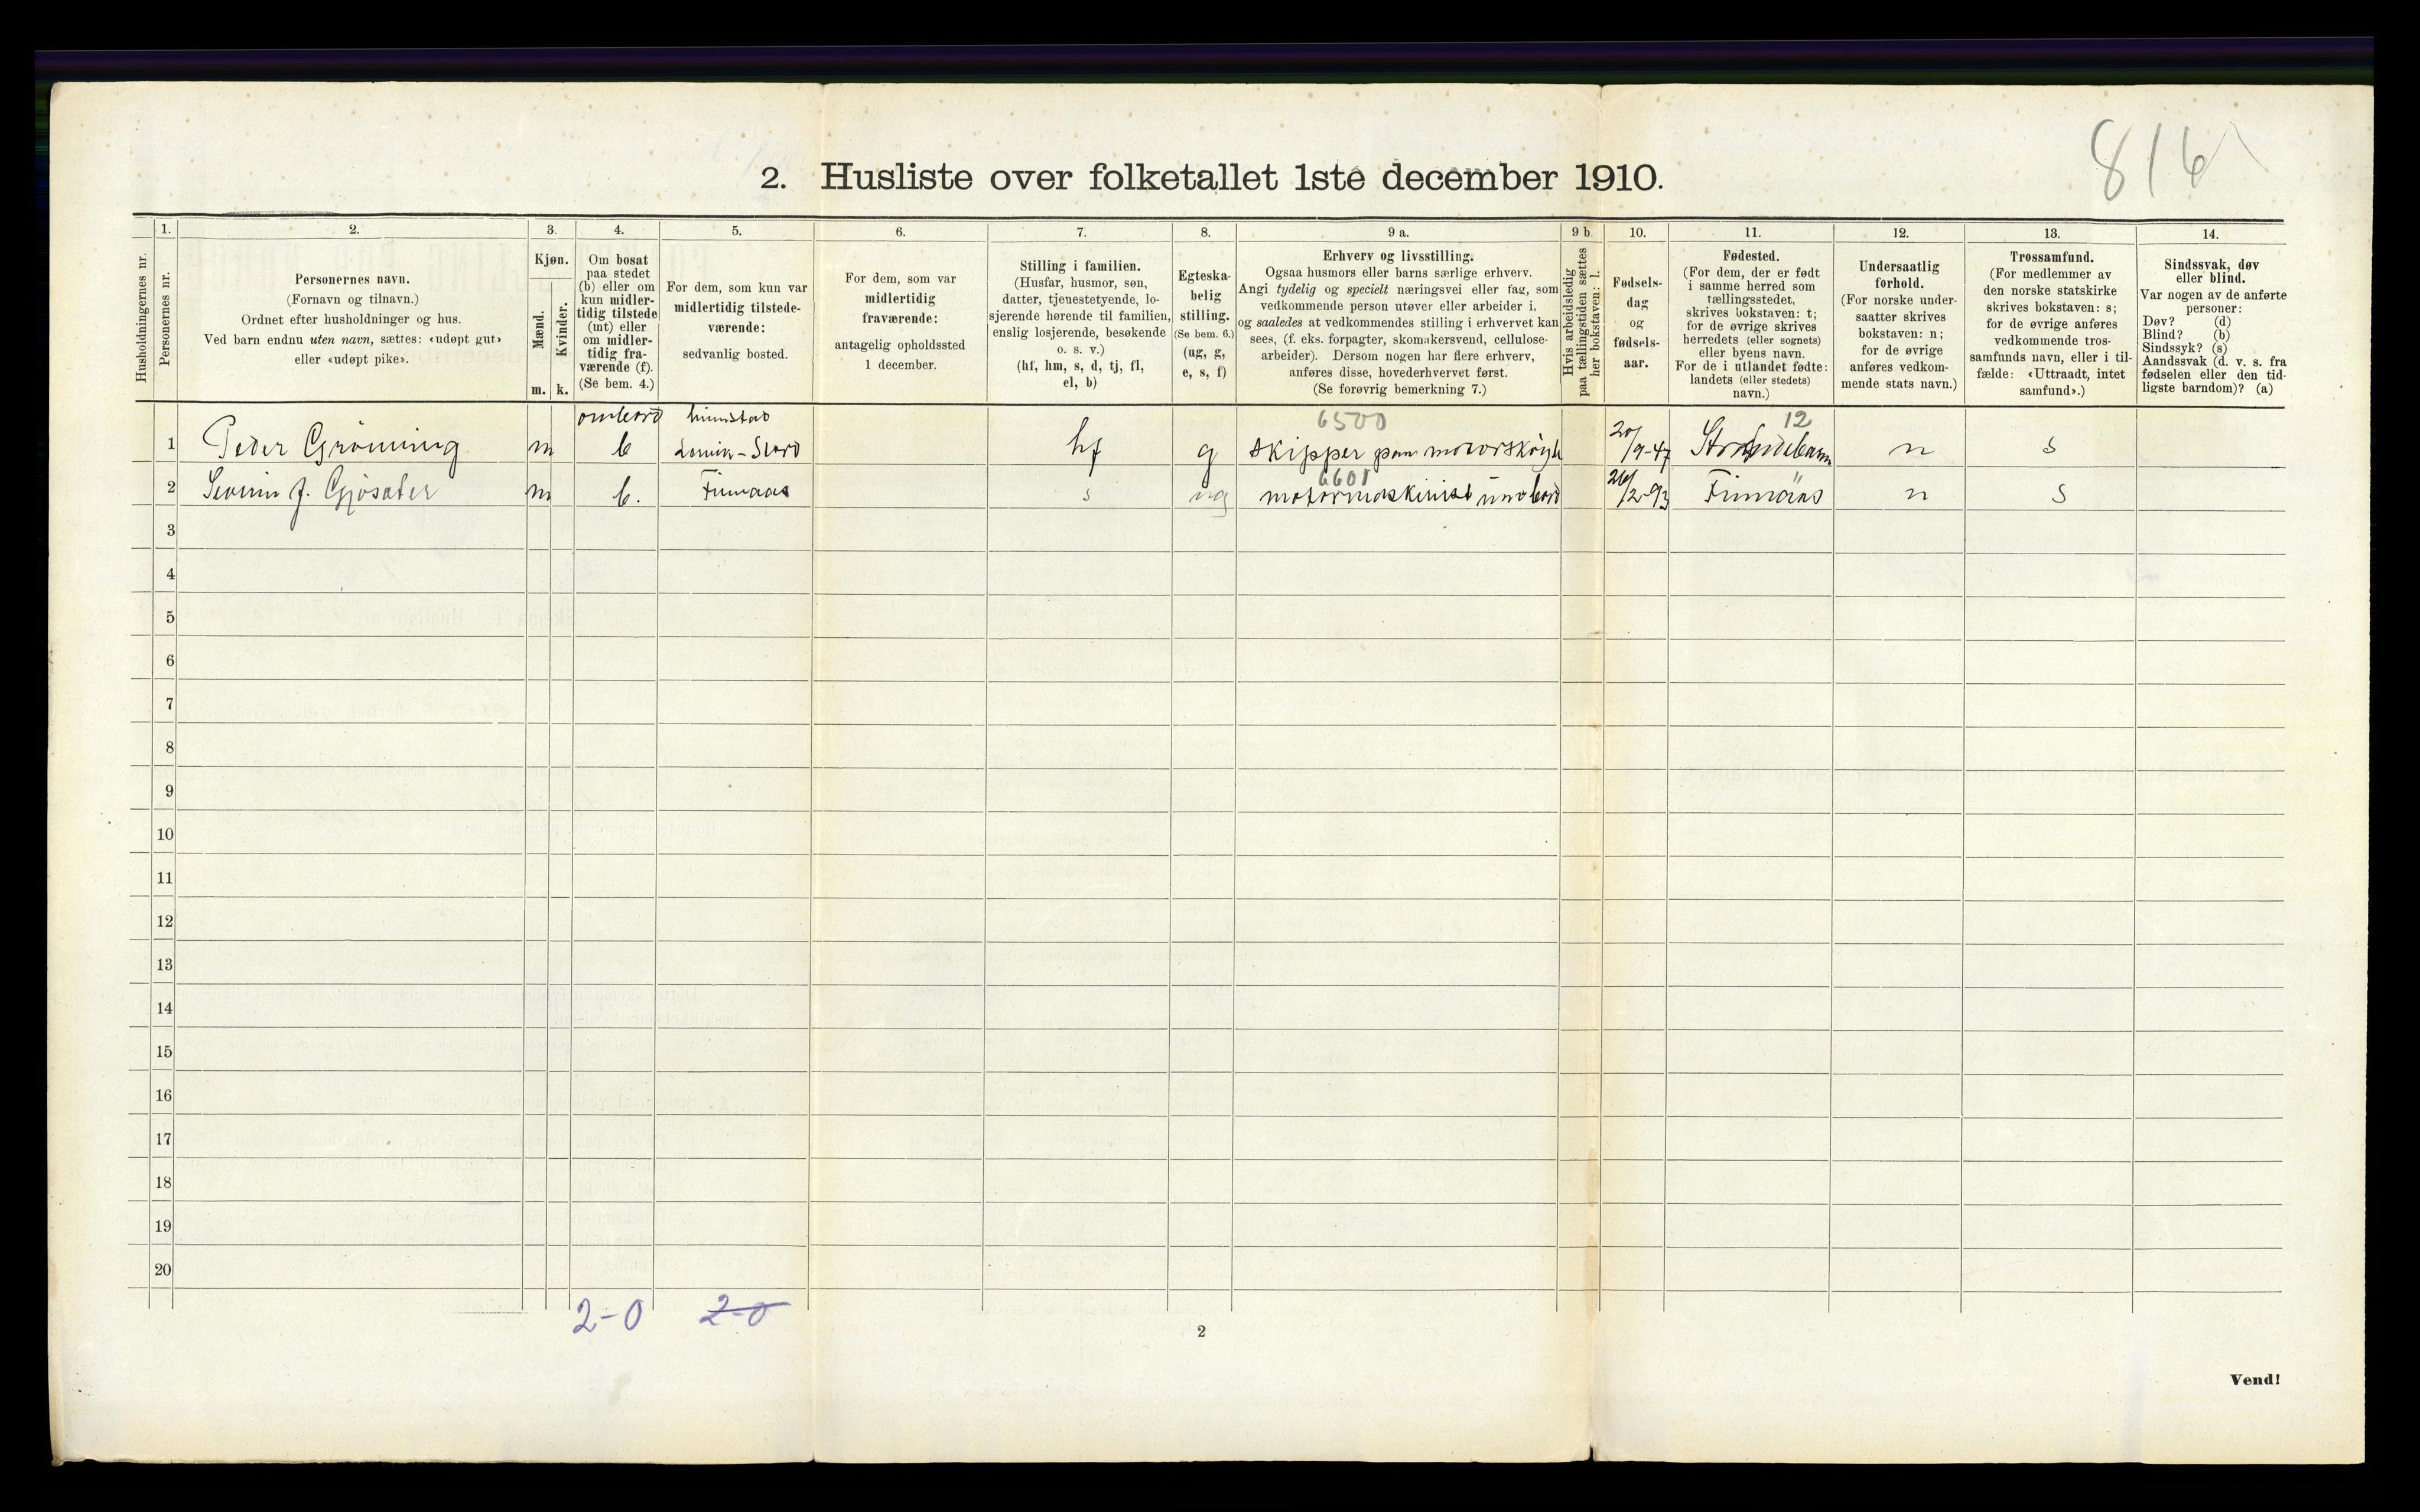 816
2. Husliste over folketallet 1ste december 1910.
Husholdningernes nr.
1.
Personernes nr.
2.
Personernes navn.
(Fornavn og tilnavn.)
Ordnet efter husholdninger og hus.
Ved barn endnu uten navn, sættes: «udøpt gut»
eller «udøpt pike».
3.
Kjøn.
Mænd.
Kvinder.
m. k.
4.
Om bosat
paa stedet
(b) eller om
kun midler-
tidig tilstede
(mt) eller
om midler-
tidig fra-
værende (f).
(Se bem. 4.)
5.
For dem, som kun var
midlertidig tilstede-
værende:
sedvanlig bosted.
6.
For dem, som var
midlertidig
fraværende:
antagelig opholdssted
1 december.
7.
Stilling i familien.
(Husfar, husmor, søn,
datter, tjenestetyende, lo-
sjerende hørende til familien,
enslig losjerende, besøkende
o. s. v.)
(hf, hm, s, d, tj, fl,
el, b)
8.
Egteska-
belig
stilling.
(Se bem. 6.)
(ug, g,
e, s, f)
9 a.
Erhverv og livsstilling.
Ogsaa husmors eller barns særlige erhverv.
Angi tydelig og specielt næringsvei eller fag, som
vedkommende person utøver eller arbeider i,
og saaledes at vedkommendes stilling i erhvervet kan
sees, (f. eks. forpagter, skomakersvend, cellulose-
arbeider). Dersom nogen har flere erhverv,
anføres disse, hovederhvervet først.
(Se forøvrig bemerkning 7.)
9 b.
Hvis arbeidsledig
paa tællingstiden sættes
her bokstaven: l.
10.
Fødsels-
dag
og
fødsels-
aar.
11.
Fødested.
(For dem, der er født
i samme herred som
tællingsstedet,
skrives bokstaven: t;
for de øvrige skrives
herredets (eller sognets)
eller byens navn.
For de i utlandet fødte:
landets (eller stedets)
navn.)
12.
Undersaatlig
forhold.
(For norske under-
saatter skrives
bokstaven: n;
for de øvrige
anføres vedkom-
mende stats navn.)
13.
Trossamfund.
(For medlemmer av
den norske statskirke
skrives bokstaven: s;
for de øvrige anføres
vedkommende tros-
samfunds navn, eller i til-
fælde: «Uttraadt, intet
samfund».)
14.
Sindssvak, døv
eller blind.
Var nogen av de anførte
personer:
Døv? (d)
Blind? (b)
Sindssyk? (s)
Aandssvak (d. v. s. fra
fødselen eller den tid-
ligste barndom)? (a)
ombord 6500 12
1 Peder Grönning m b Stord hf g skipper paa 20/9-47 n s
6601
2 Severin J. Gjösater m b. Finnaas s ug motormaskinist ombord 26/2-93 Finnaas n s
3
4
5
6
7
8
9
10
11
12
13
14
15
16
17
18
19
20
2-0 2-0
2
Vend!